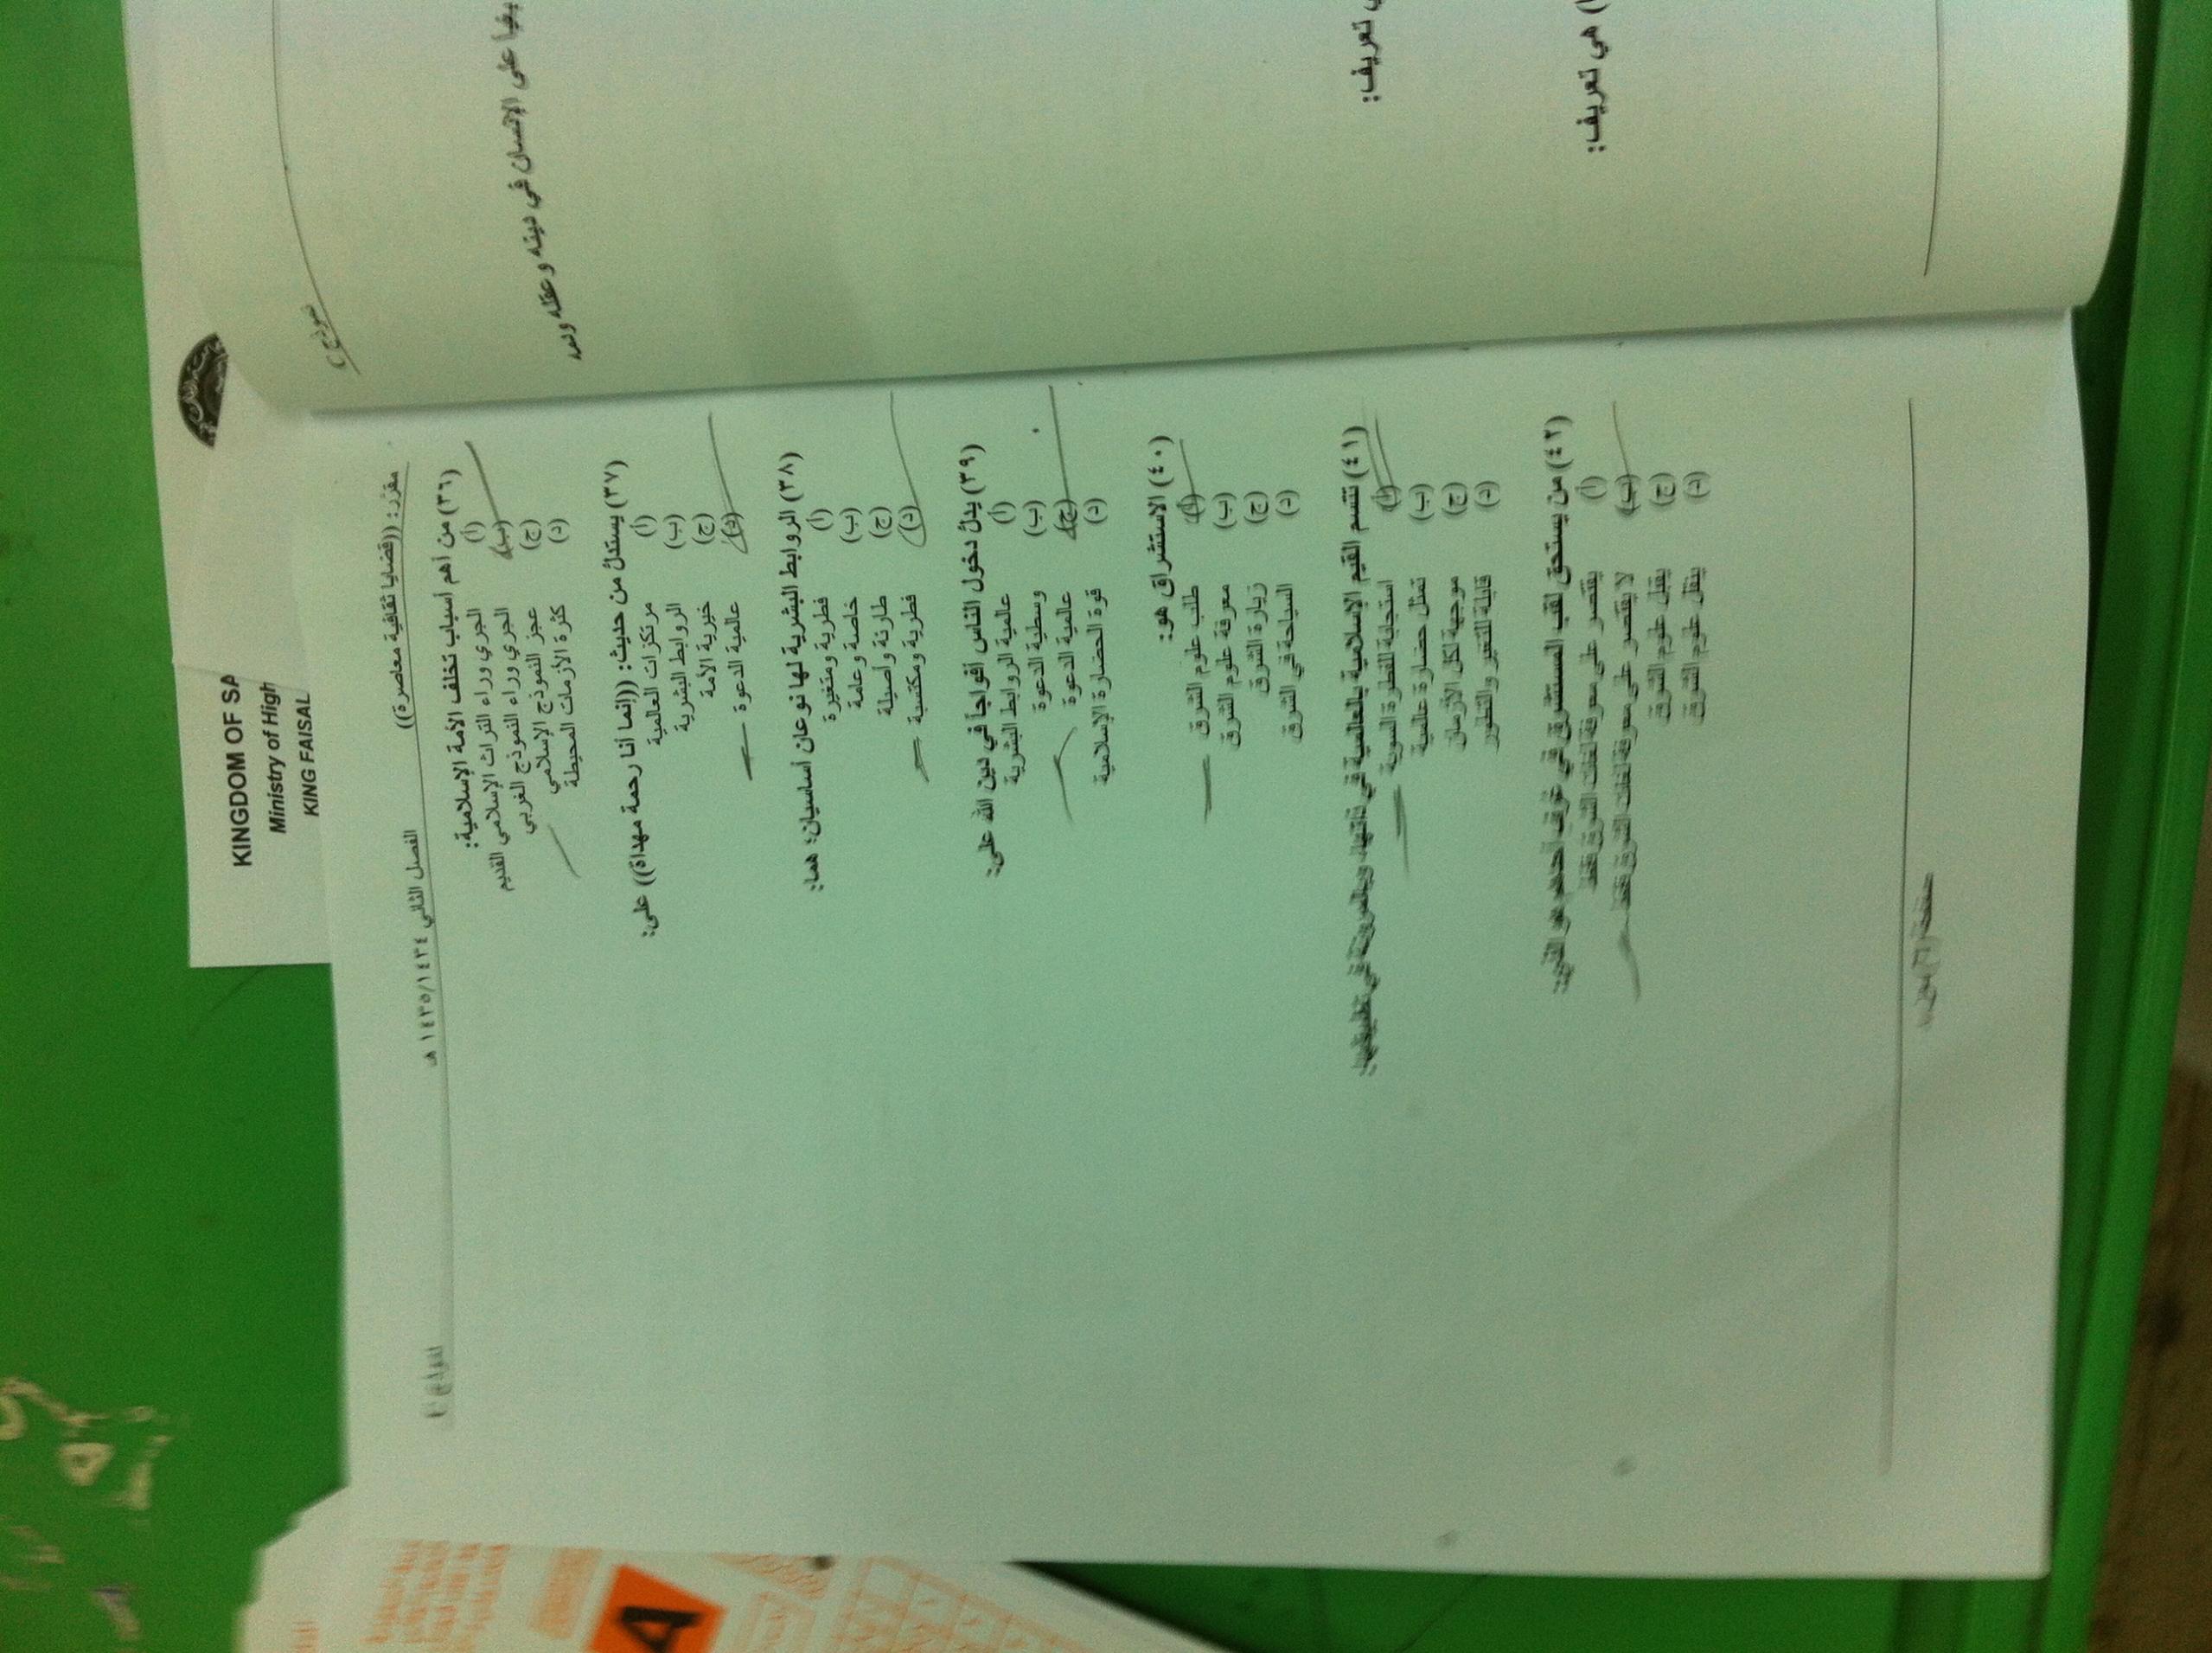 KINGDOM OF SA
Ministry of High
KING FAISAL
نموذج (
على الإنسان في دينه وعقله
تعريف:
) هي تعريف:
مقرّر: ((قضايا ثقافية معاصرة)) الفصل الثاني ١٤٣٤/١٤٣٥ هـ
(٣٦) من أهم أسباب تخلف الأمة الإسلامية:
(أ) الجري وراء التراث الإسلامي القديم
(ب) الجري وراء النموذج الغربي
(ج) عجز النموذج الإسلامي
(د) كثرة الأزمات المحيطة
(٣٧) يستدلّ من حديث: ((إنما أنا رحمة مهداة)) على:
(أ) مرتكزات العالمية
(ب) الروابط البشرية
(ج) خيرية الأمة
(د) عالمية الدعوة
(٣٨) الروابط البشرية لها نوعان أساسيان؛ هما:
(أ) فطرية ومتغيرة
(ب) خاصة وعامة
(ج) طارئة وأصيلة
(د) فطرية ومكتسبة
(٣٩) يدلّ دخول الناس أفواجاً في دين الله على:
(أ) عالمية الروابط البشرية
(ب) وسطية الدعوة
(ج) عالمية الدعوة
(د) قوة الحضارة الإسلامية
(٤٠) الاستشراق هو:
(أ) طلب علوم الشرق
(ب) معرفة علوم الشرق
(ج) زيارة الشرق
(د) السياحة في الشرق
(٤١) تتسم القيم الإسلامية بالعالمية في ذاتها، وبالمرونة في تطبيقها؛
(أ) استجابة للفطرة السوية
(ب) تمثل حضارة عالمية
(ج) موجهة لكل الأزمان
(د) قابلة للتغير والتطور
(٤٢) من يستحق لقب المستشرق في عرف أحدهم هو الذي:
(أ) يقتصر على معرفة لغات الشرق فقط
(ب) لا يقتصر على معرفة لغات الشرق فقط
(ج) يقبل علوم الشرق
(د) ينقل علوم الشرق
A